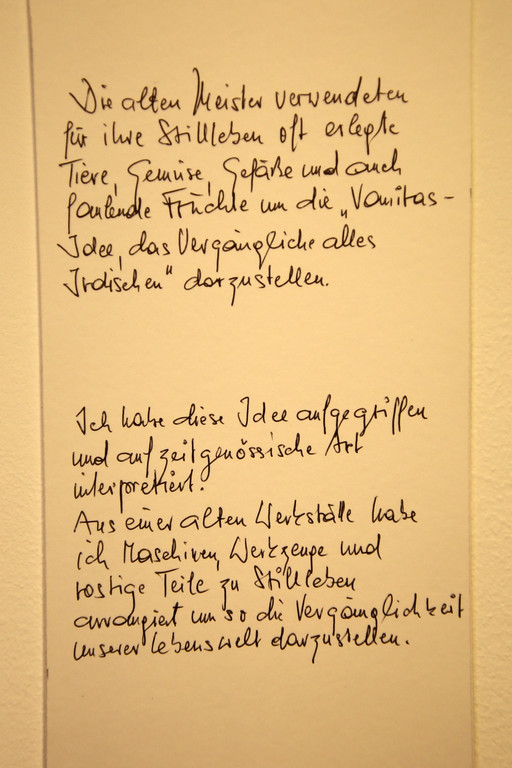 Die alten Meister verwendeten
für ihre Stillleben oft erlegte
Tiere, Gemüse, Gefäße und auch
faulende Früchte um die „Vanitas-
Idee, das Vergängliche alles
Irdischen“ darzustellen.
Ich habe diese Idee aufgegriffen
und auf zeitgenössische Art
interpretiert.
Aus einer alten Werkstätte habe
ich Maschinen, Werkzeuge und
rostige Teile zu Stillleben
arrangiert um so die Vergänglichkeit
unserer Lebenswelt darzustellen.